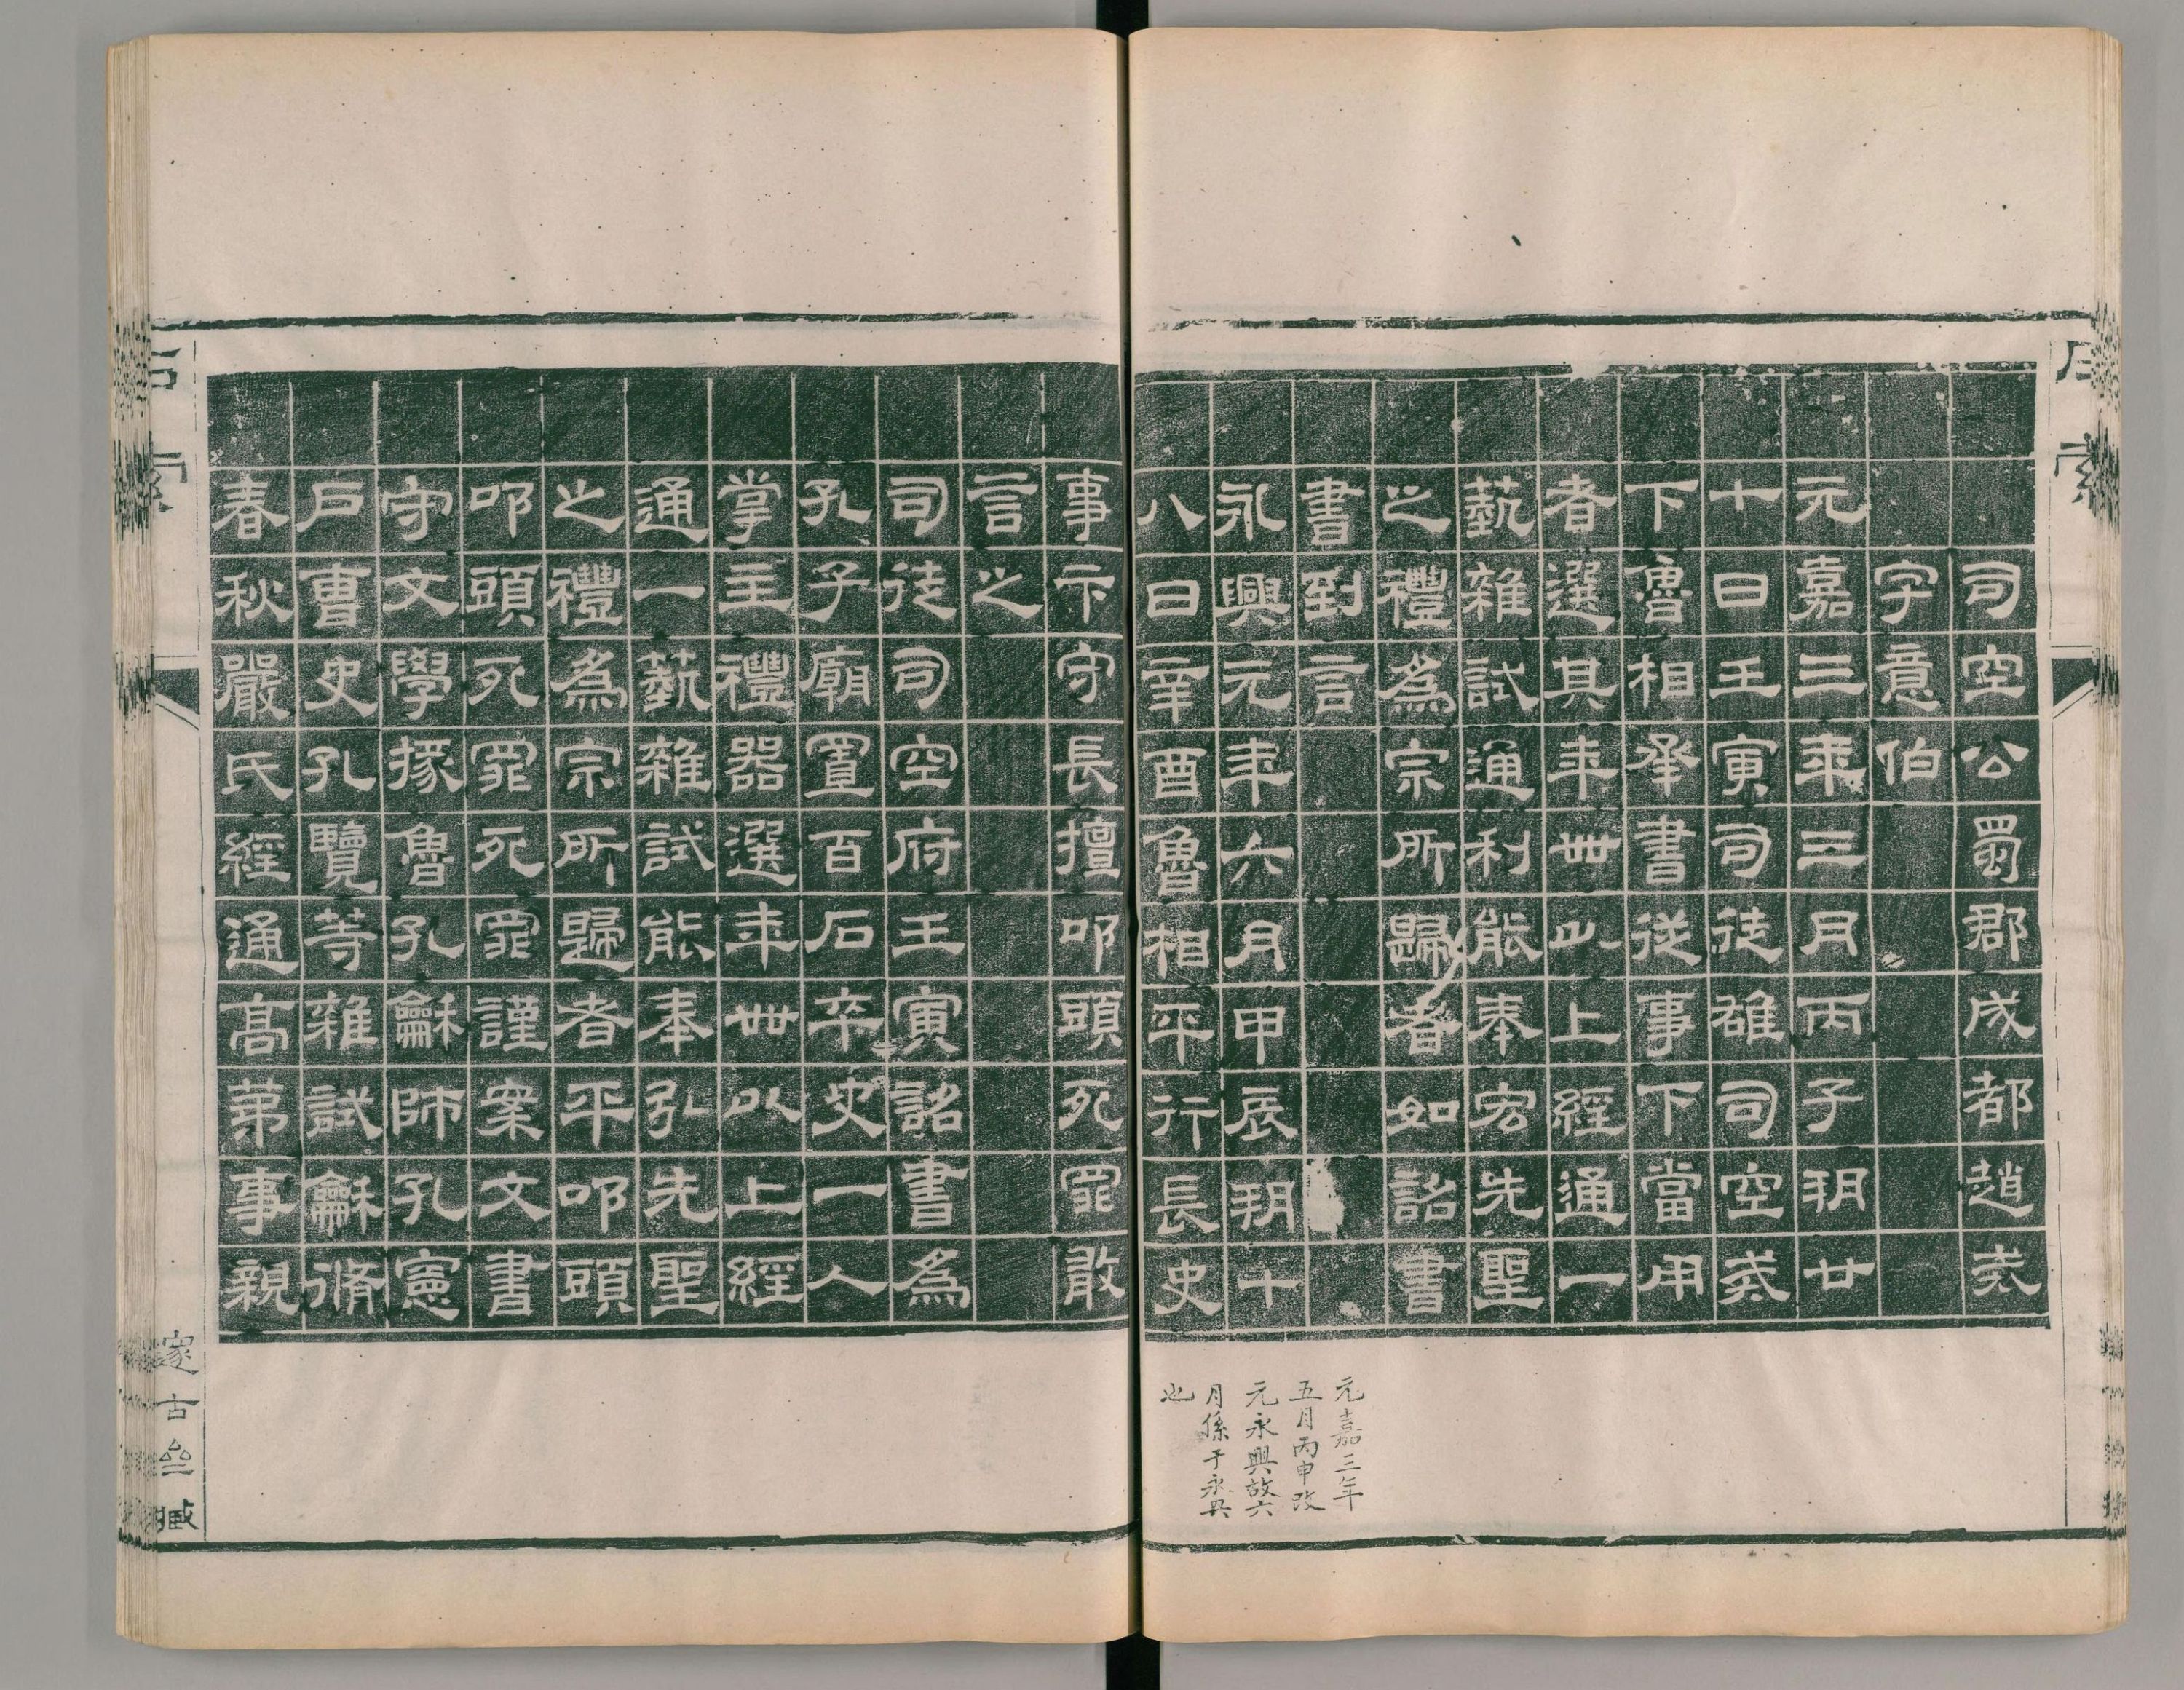 司空公蜀郡成都趙戒
字意伯
元嘉三年三月丙子朔廿
七日壬寅司徒雄司空戒
下魯相承書從事下當用
者選其年卌以上經通一
藝雜試通利能奉宏先聖
之禮為宗所歸者如詔書
書到言
永興元年六月甲辰朔十
八日辛酉魯相平行長史
元嘉三年
五月丙申改
元永興故六
月係于永興
也
事卞守長擅叩頭死罪敢
言之
司徒司空府壬寅詔書為
孔子廟置百石卒史一人
掌主禮器選年卌以上經
通一藝雜試能奉弘先聖
之禮為宗所歸者平叩頭
叩頭死罪死罪謹案文書
守文學掾魯孔龢師孔憲
戶曹史孔覽等雜試龢脩
春秋嚴氏經通高第事親
石索
邃古齋臧